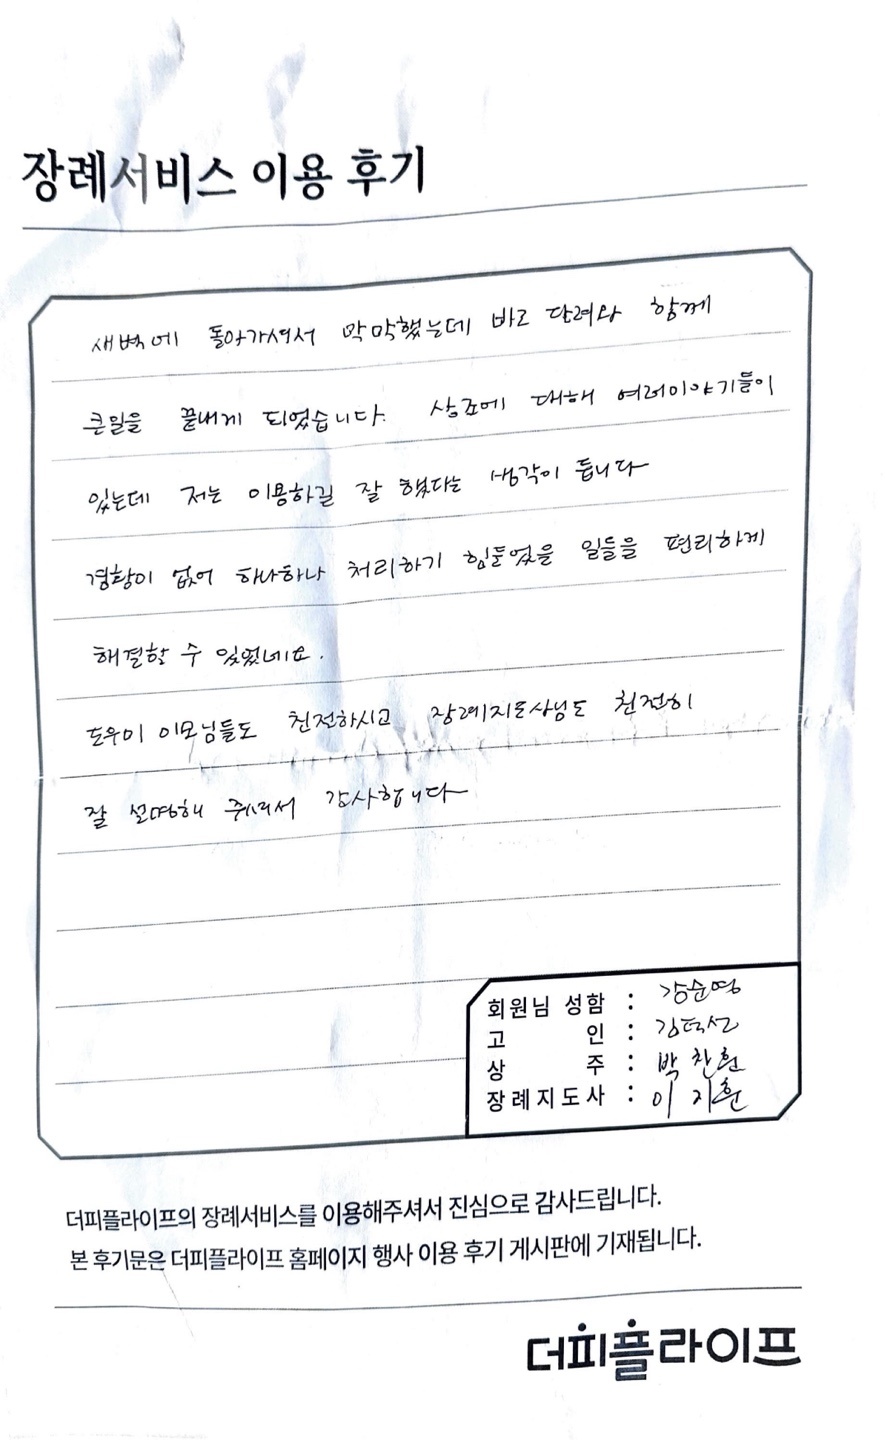 장례서비스 이용 후기
새벽에 돌아가셔서 막막했는데 바로 달려와 함께
큰일을 끝내게 되었습니다. 상조에 대해 여러이야기들이
있는데 저는 이용하길 잘 했다는 생각이 듭니다
경황이 없어 하나하나 처리하기 힘들었을 일들을 편리하게
해결할 수 있었네요.
도우미 이모님들도 친절하시고 장례지도사님도 친절히
잘 설명해 주셔서 감사합니다
회원님 성함 : 강순영
고 인 : 김덕선
상 주 : 박찬환
장례지도사 : 이지훈
더피플라이프의 장례서비스를 이용해주셔서 진심으로 감사드립니다.
본 후기문은 더피플라이프 홈페이지 행사 이용 후기 게시판에 기재됩니다.
더피플라이프